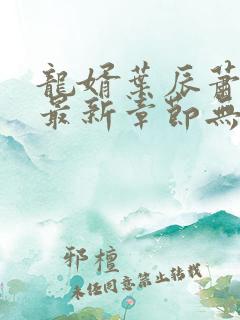 龍婿葉辰蕭
最新章節無
邪檀
未任同意禁止转载